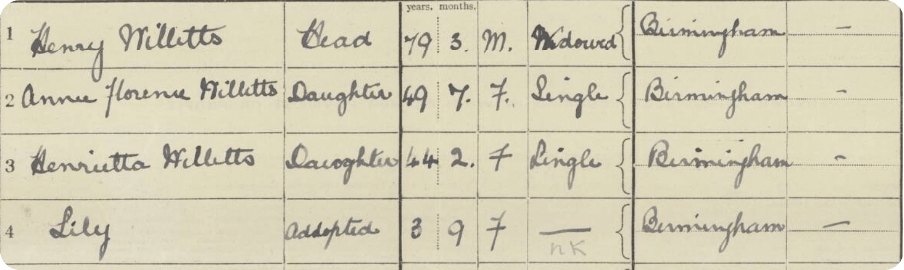 years. months.
1 Henry Willetts Head 79 3. M. Widowed Birmingham —
2 Annie Florence Willetts Daughter 49 7. F. Single Birmingham -
3 Henrietta Willetts Davoghter 44 2. F Single Birmingham -
4 Lily Addopted 3 9 F — Birmingham —
nK